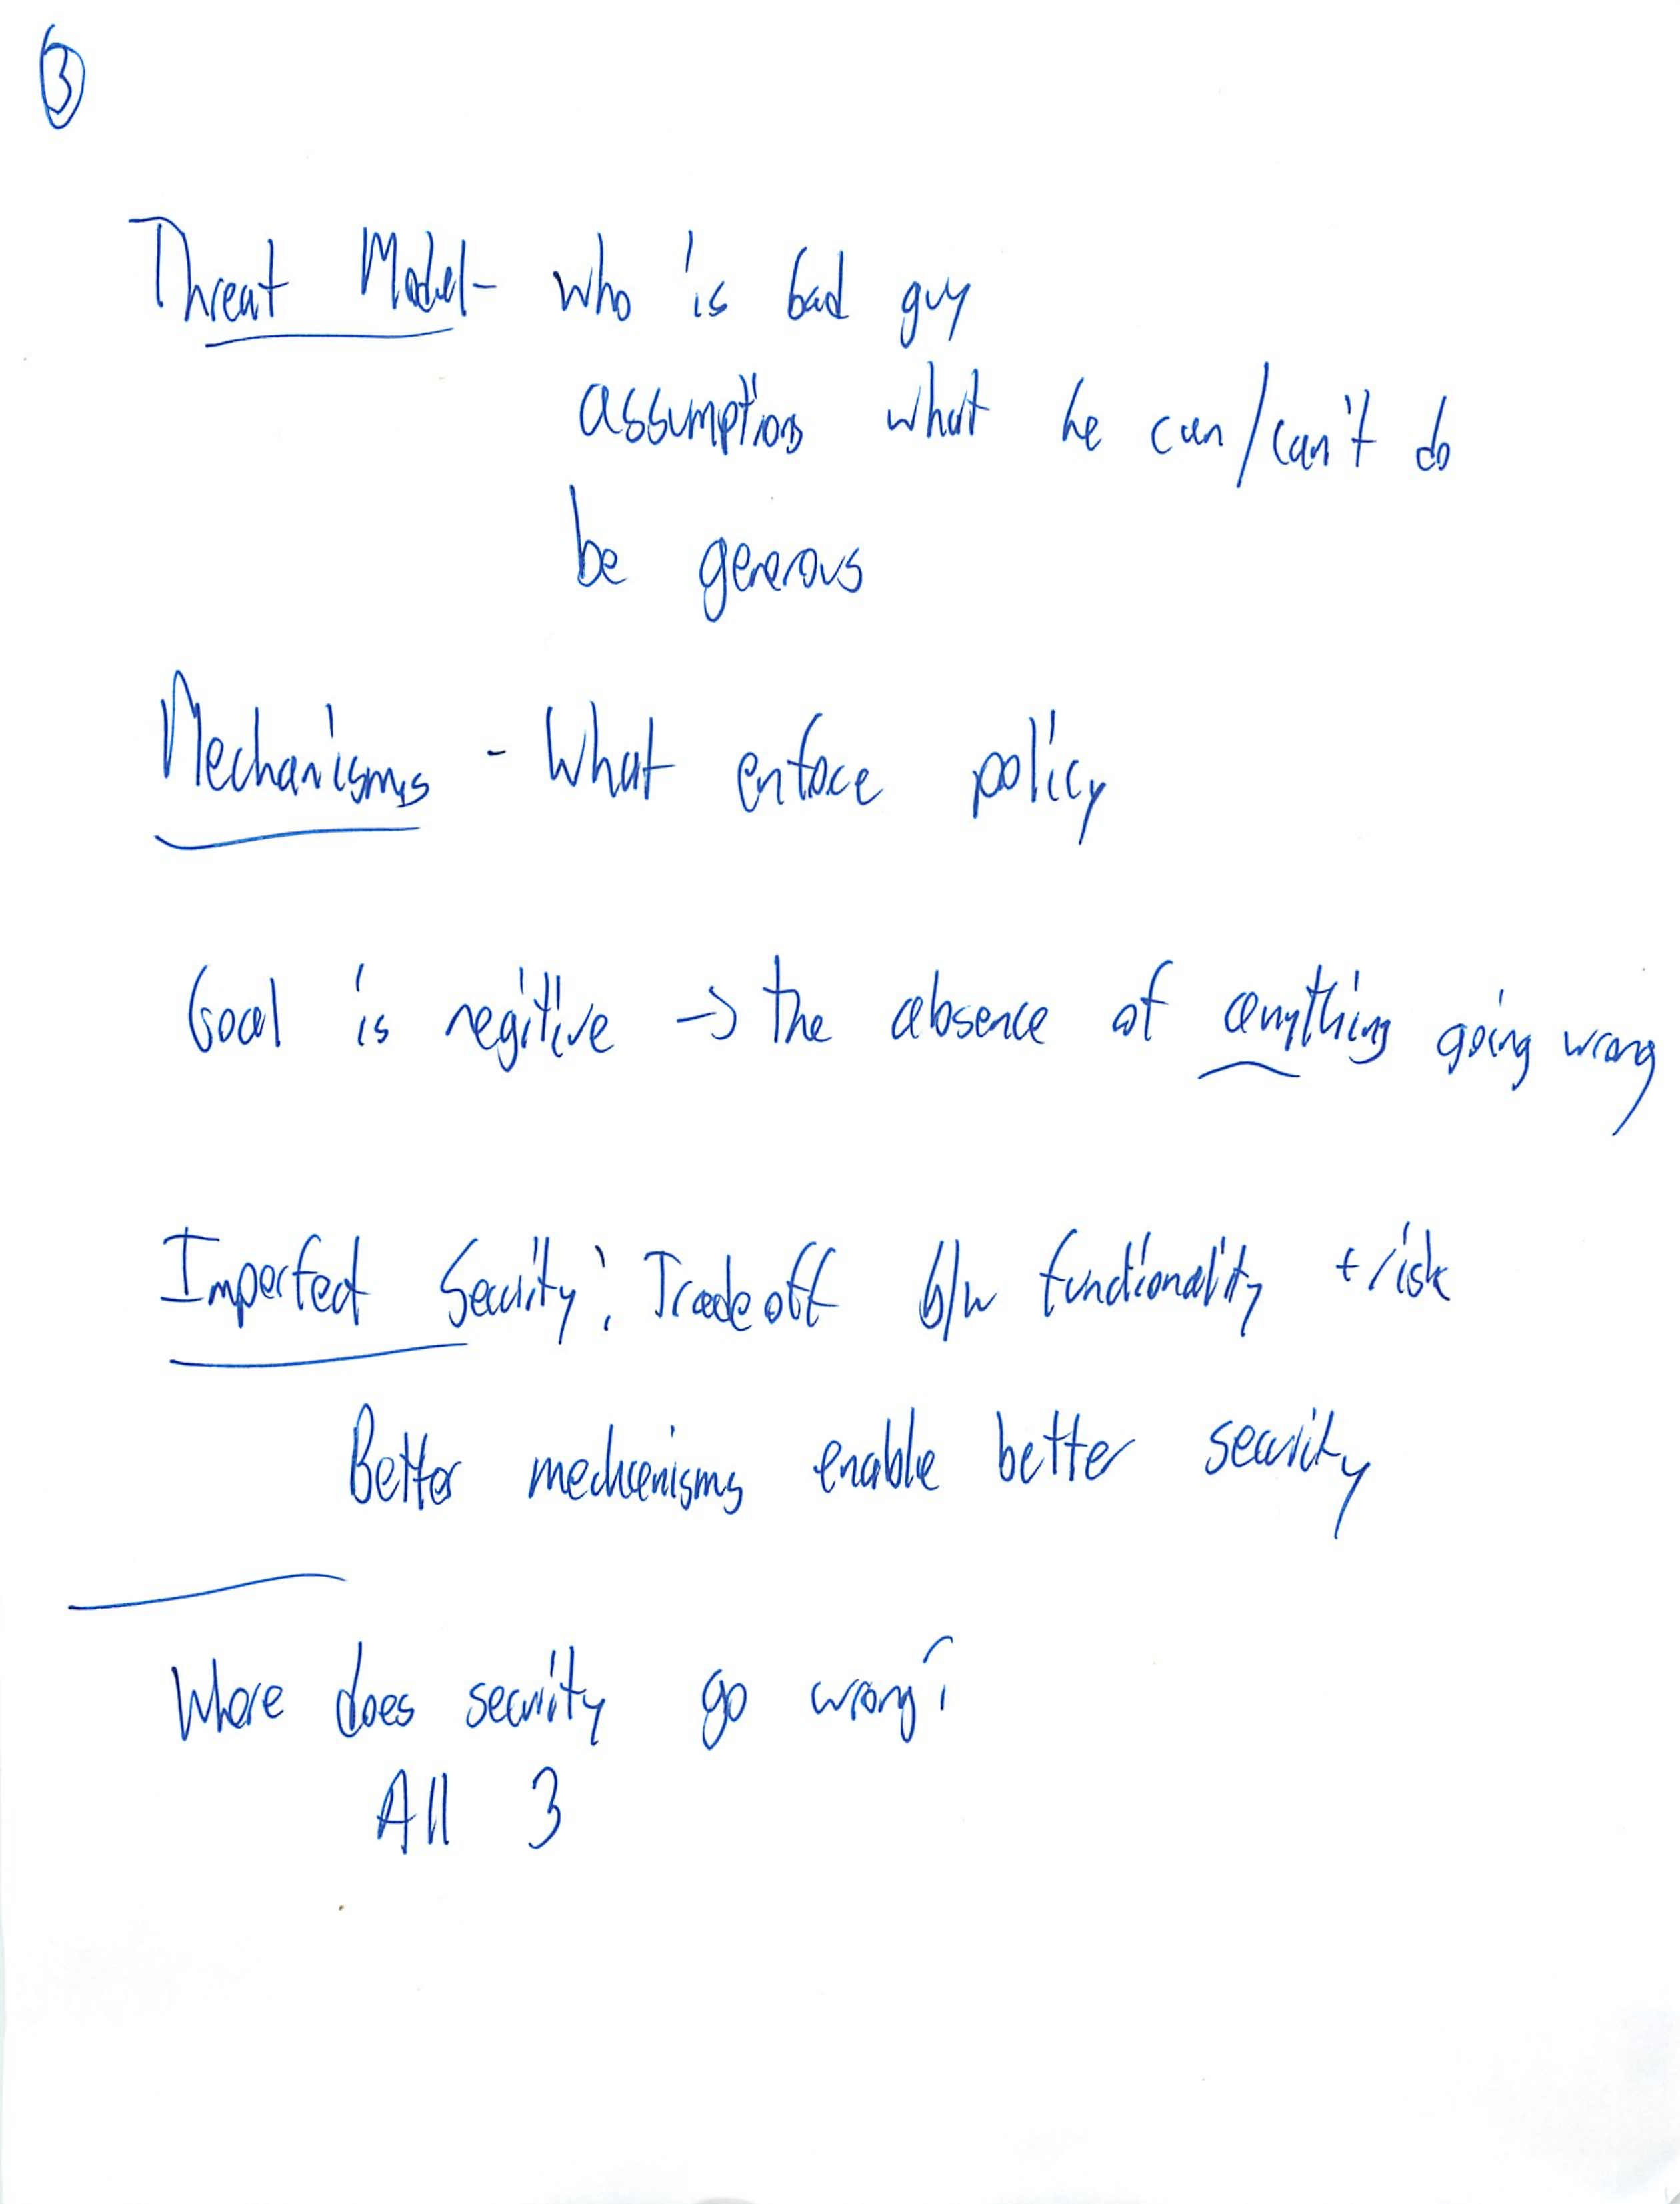 3
Threat Model - who is bad guy
assumptions what he can/can't do
be generous
Mechanisms - What enforce policy
Goal is negitive → the absence of anything going wrong
Imperfect Security: Tradeoff b/w functionality + risk
Better mechanisms enable better security
Where does security go wrong?
All 3